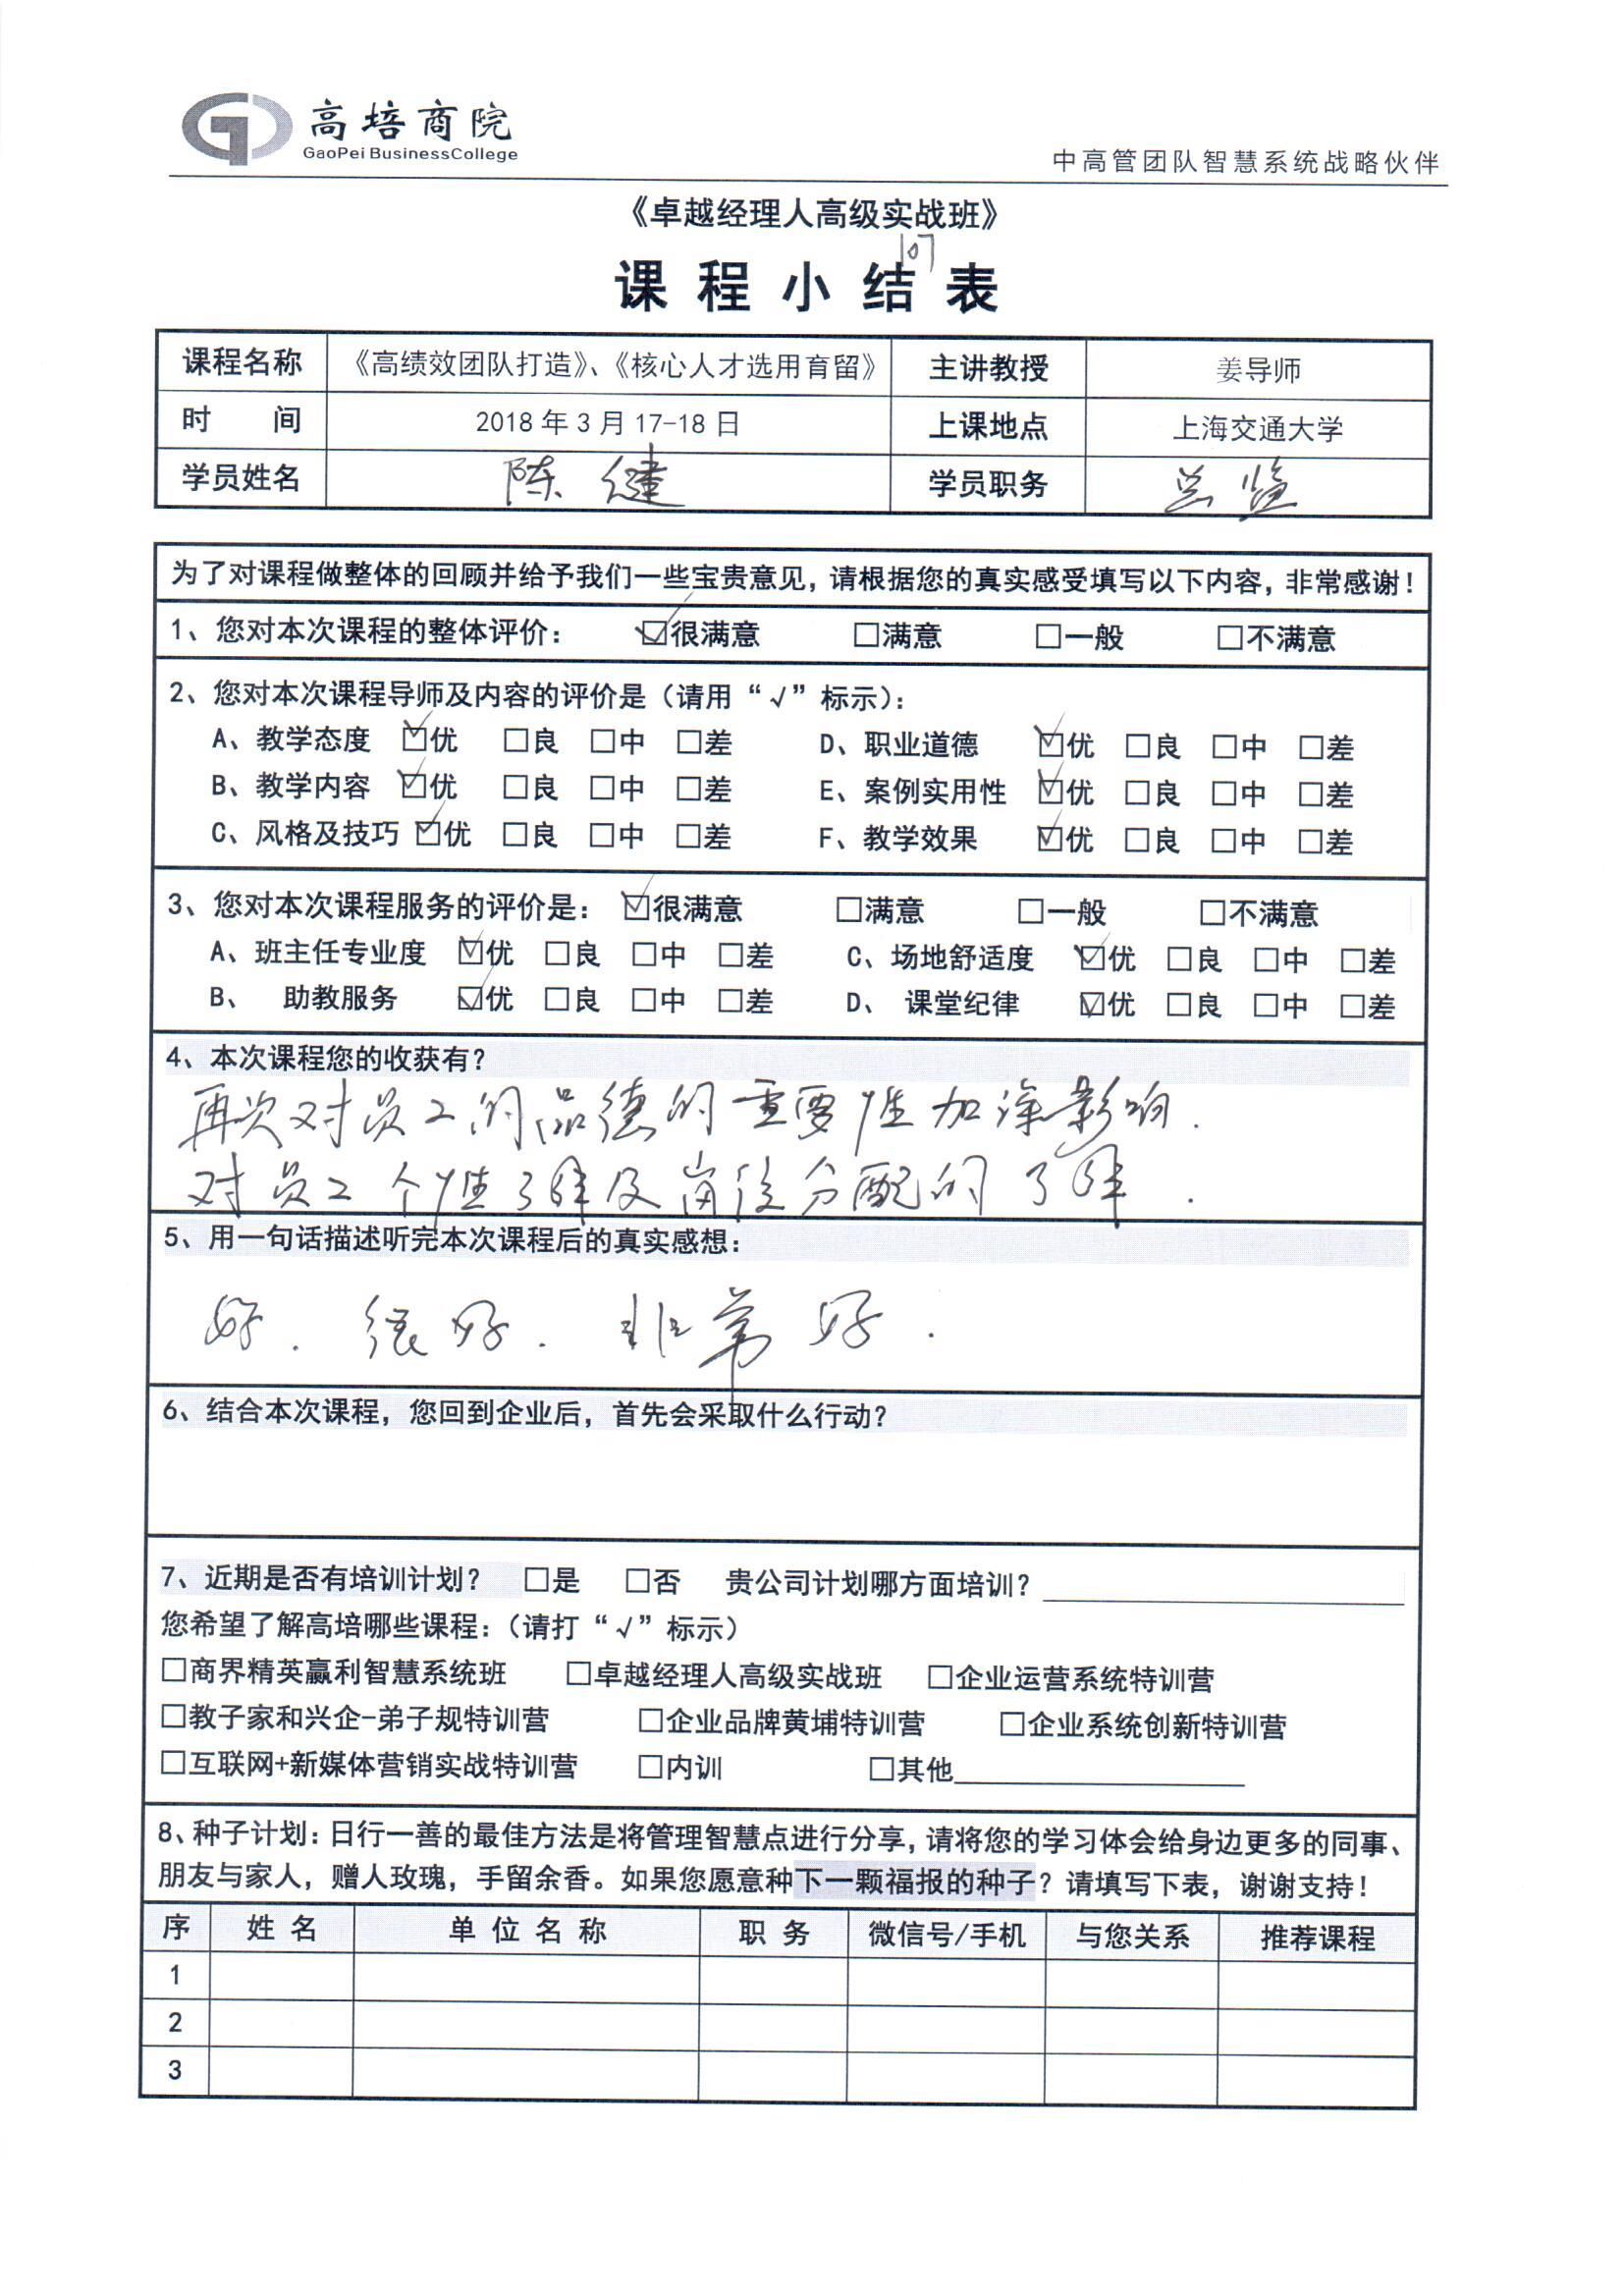 高培商院
GaoPei BusinessCollege
中高管团队智慧系统战略伙伴
《卓越经理人高级实战班》
107
课程小结表
课程名称 《高绩效团队打造》、《核心人才选用育留》 主讲教授 姜导师
时 间 2018年3月17-18日 上课地点 上海交通大学
学员姓名 陈健 学员职务 总监
为了对课程做整体的回顾并给予我们一些宝贵意见，请根据您的真实感受填写以下内容，非常感谢！
1、您对本次课程的整体评价： ☑很满意 □满意 □一般 □不满意
2、您对本次课程导师及内容的评价是（请用“√”标示）：
A、教学态度 ☑优 □良 □中 □差 D、职业道德 ☑优 □良 □中 □差
B、教学内容 ☑优 □良 □中 □差 E、案例实用性 ☑优 □良 □中 □差
C、风格及技巧 ☑优 □良 □中 □差 F、教学效果 ☑优 □良 □中 □差
3、您对本次课程服务的评价是： ☑很满意 □满意 □一般 □不满意
A、班主任专业度 ☑优 □良 □中 □差 C、场地舒适度 ☑优 □良 □中 □差
B、 助教服务 ☑优 □良 □中 □差 D、 课堂纪律 ☑优 □良 □中 □差
4、本次课程您的收获有？
再次对员工的品德的重要性加深影响.
对员工个性了解及岗位分配的了解.
5、用一句话描述听完本次课程后的真实感想：
好. 很好. 非常好.
6、结合本次课程，您回到企业后，首先会采取什么行动？
7、近期是否有培训计划？ □是 □否 贵公司计划哪方面培训？
您希望了解高培哪些课程：（请打“√”标示）
□商界精英赢利智慧系统班 □卓越经理人高级实战班 □企业运营系统特训营
□教子家和兴企-弟子规特训营 □企业品牌黄埔特训营 □企业系统创新特训营
□互联网+新媒体营销实战特训营 □内训 □其他
8、种子计划：日行一善的最佳方法是将管理智慧点进行分享，请将您的学习体会给身边更多的同事、
朋友与家人，赠人玫瑰，手留余香。如果您愿意种下一颗福报的种子？请填写下表，谢谢支持！
序 姓名 单位名称 职务 微信号/手机 与您关系 推荐课程
1
2
3